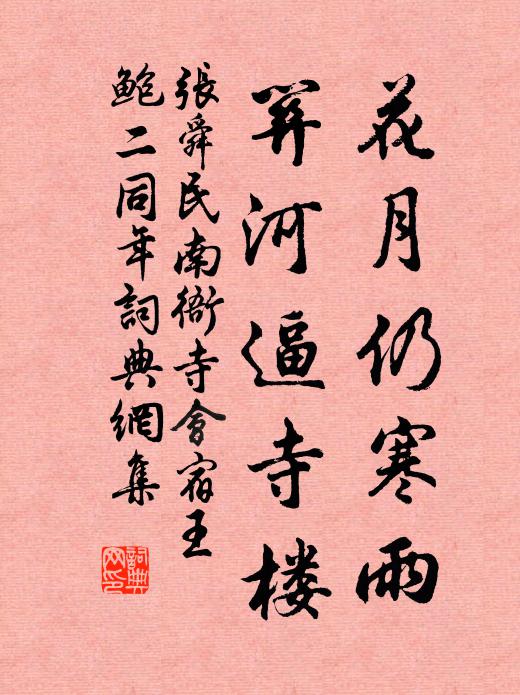 花月仍寒雨
河逼寺楼
張舜民南衙寺會宿王
鲍二同年詞典網集
詞典網印